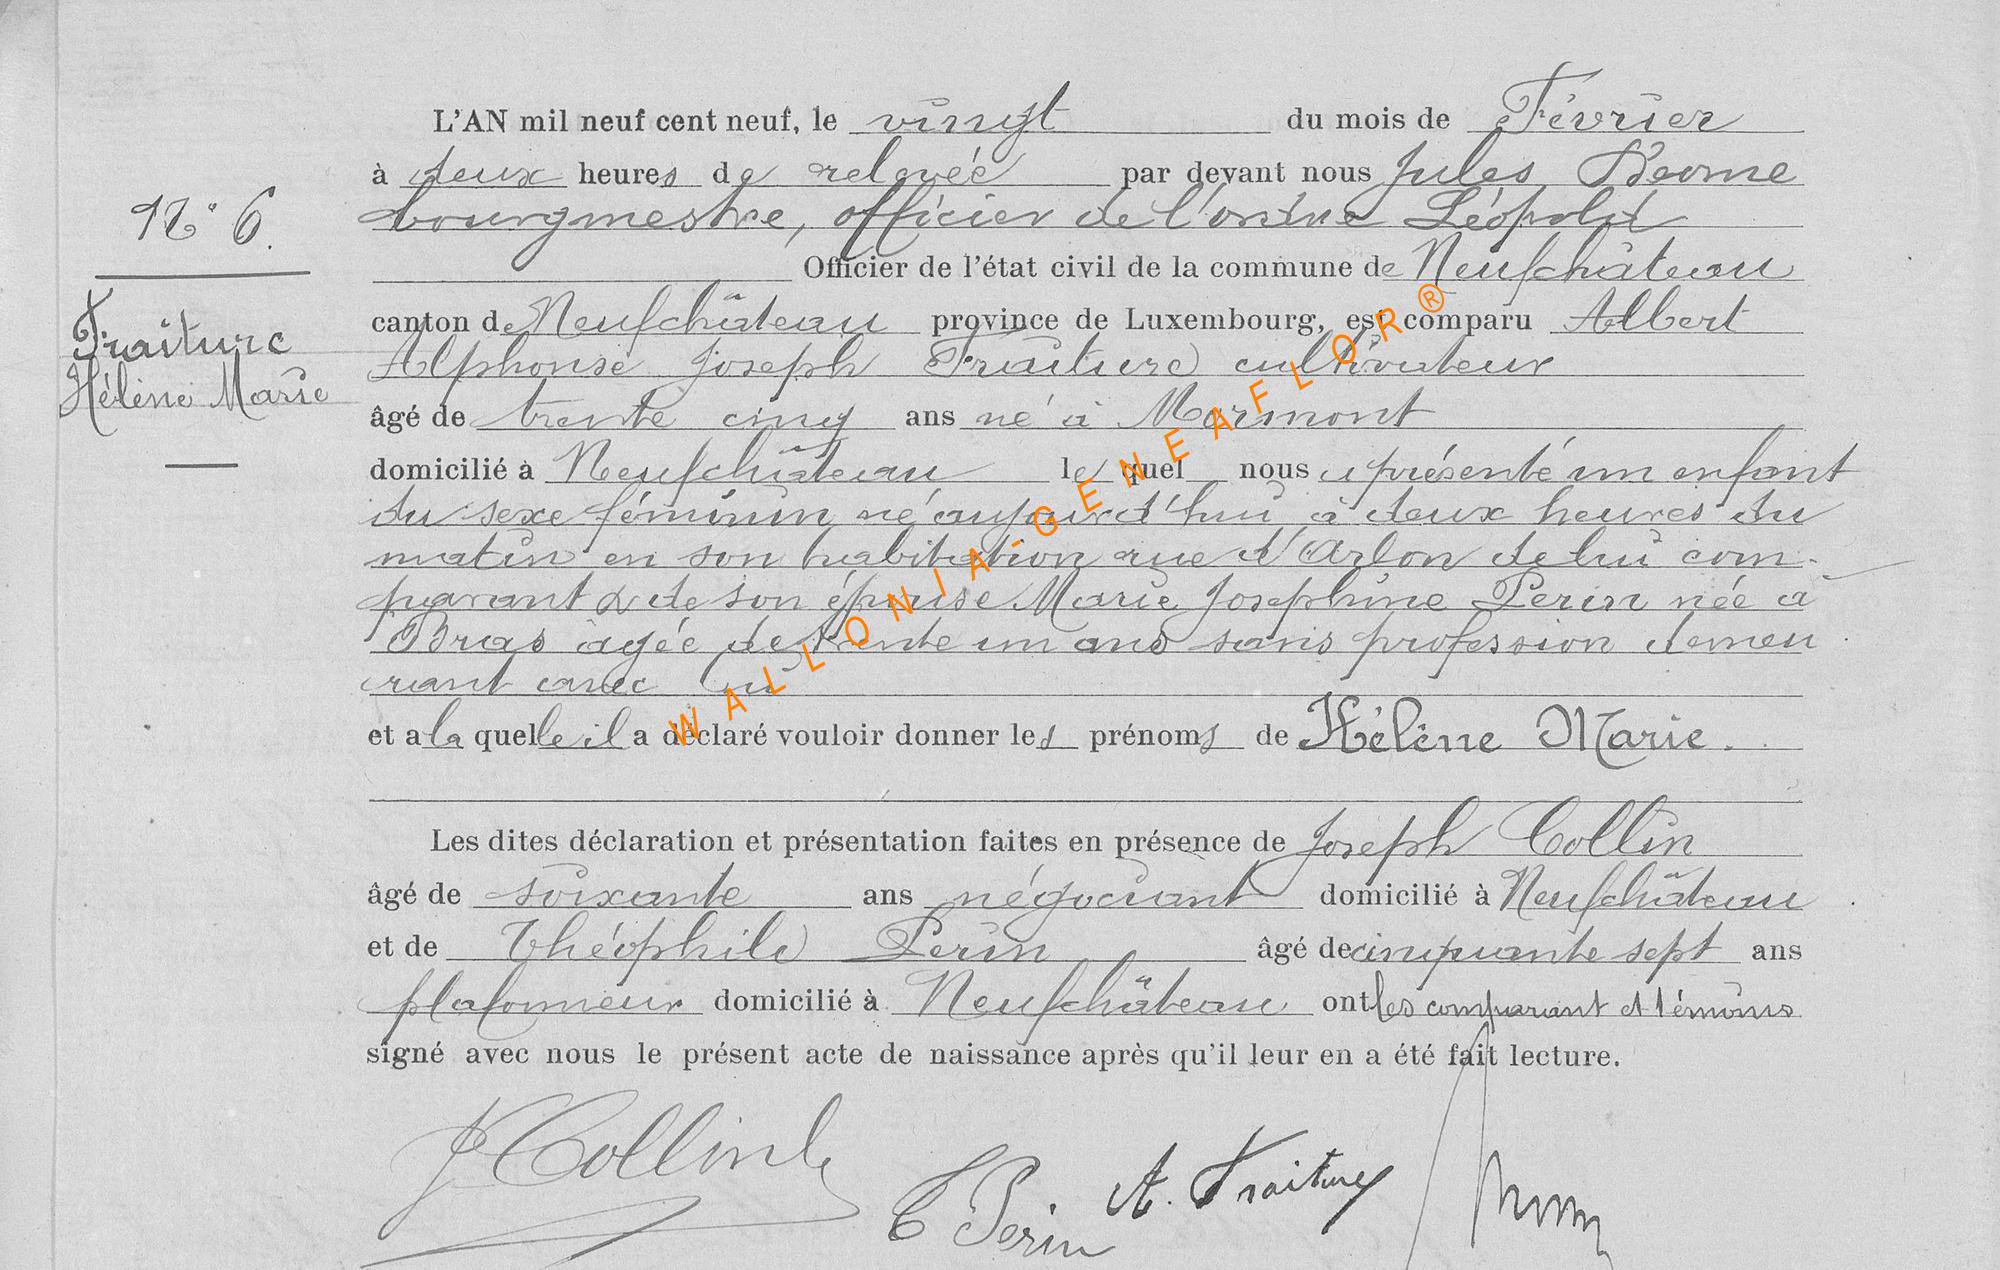 L'AN mil neuf cent neuf, le vingt du mois de Février
à deux heures de relevée par devant nous Jules
bourgmestre, officier de l'ordre Léopold
Officier de l'état civil de la commune de Neufchâteau
canton de Neufchâteau province de Luxembourg, est comparu Albert
Alphonse Joseph Traiture cultivateur
âgé de trente cinq ans né à Mormont
domicilié à Neufchâteau le quel nous a présenté un enfant
du sexe féminin né aujourd'hui à deux heures du
matin en son habitation rue d'Arlon de lui com-
parant & de son épouse Marie Josephine Perin née à
Bras âgée de trente un ans sans profession demeu
rant avec lui
et a la quelle il a déclaré vouloir donner les prénoms de Hélène Marie.
Les dites déclaration et présentation faites en présence de Joseph Collin
âgé de soixante ans négociant domicilié à Neufchâteau
et de Théophile Perin âgé de cinquante sept ans
plafonneur domicilié à Neufchâteau ont les comparant et témoins
signé avec nous le présent acte de naissance après qu'il leur en a été fait lecture.
N° 6.
Traiture
Hélène Marie
J Collin
T Perin
A. Traiture
WALLONIA-GENEAFLOR®